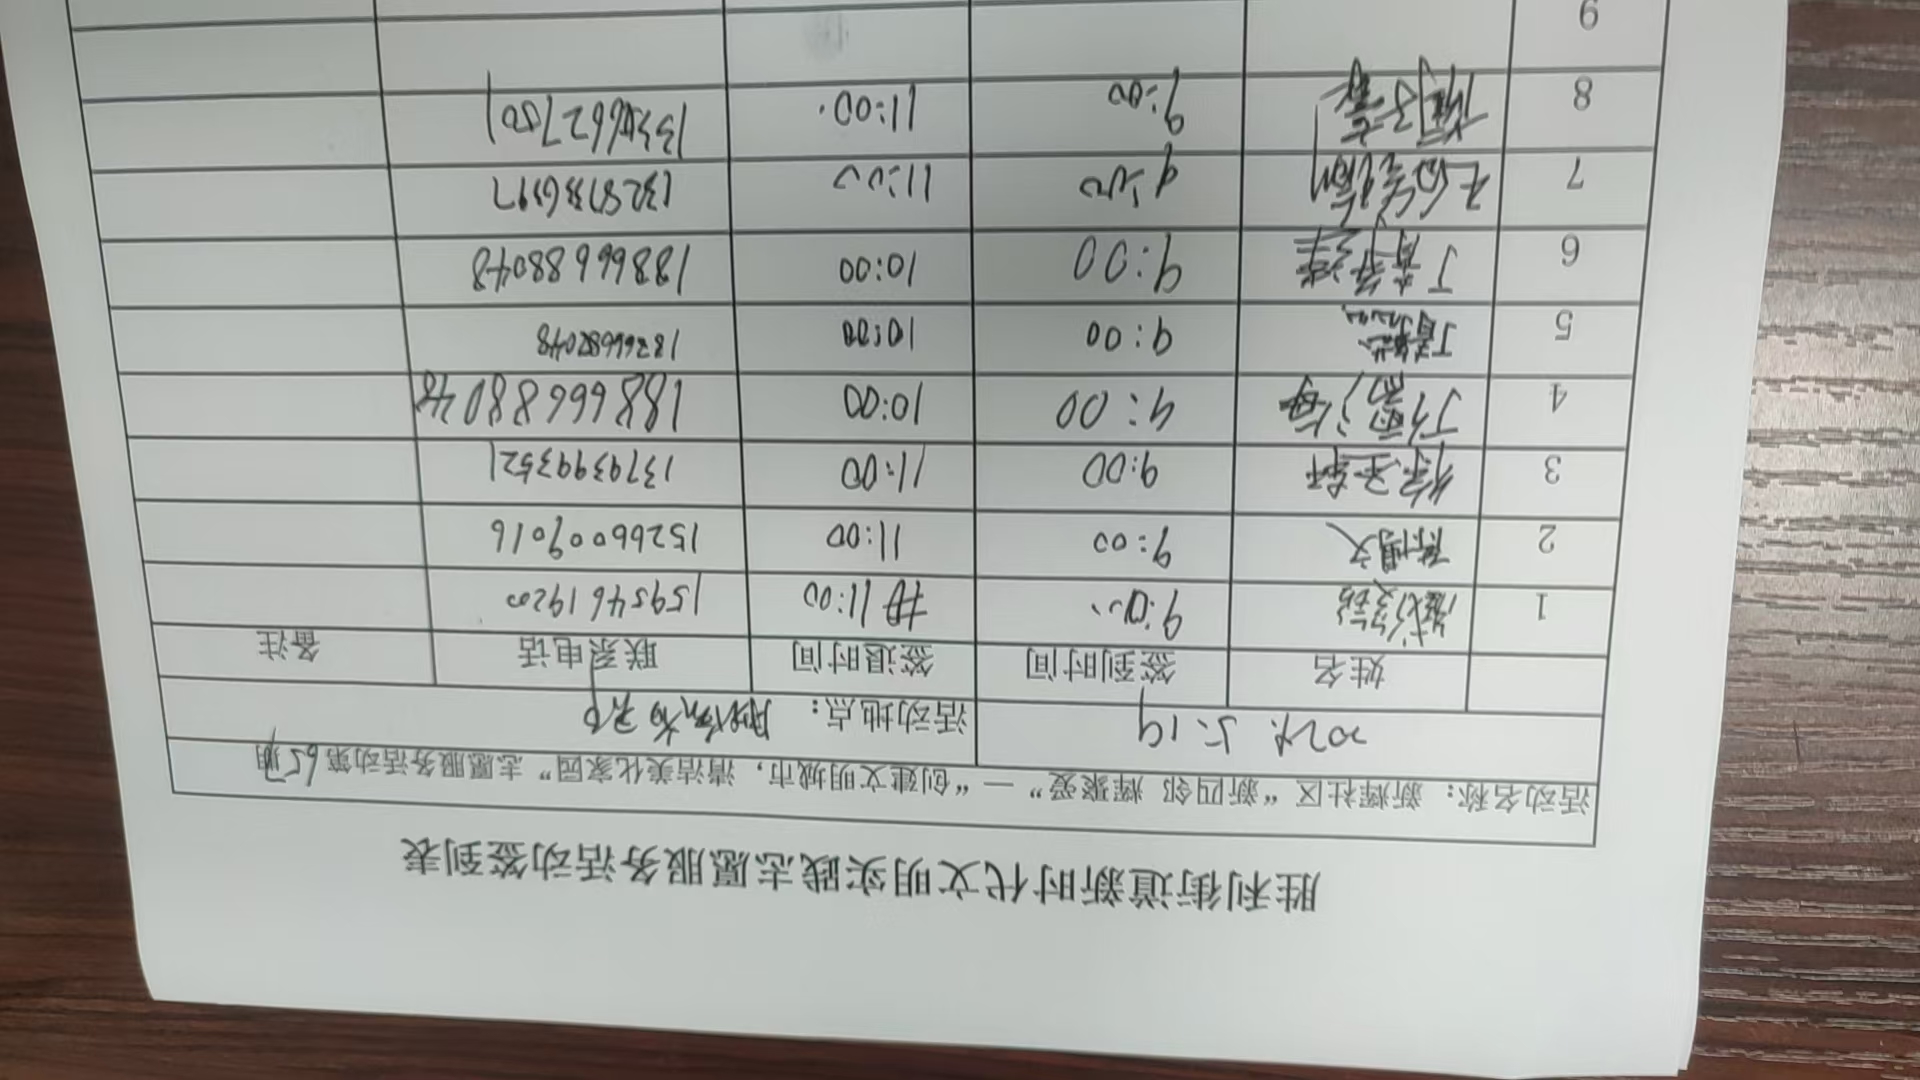 胜利街道新时代文明实践志愿服务活动签到表
活动名称：新辉社区“新四邻 辉聚爱”—“创建文明城市，清洁美化家园”志愿服务活动第65期
5.19 活动地点：
姓名 签到时间 签退时间 联系电话 备注
1 9:00 11:00 15954619200
2 陈博文 9:00 11:00 15266009016
3 徐圣轩 9:00 11:00 13793993521
4 9:00 10:00 18866688048
5 9:00 10:00
6 9:00 10:00 18866688048
7 9:00 11:00
8 9:00 11:00
9